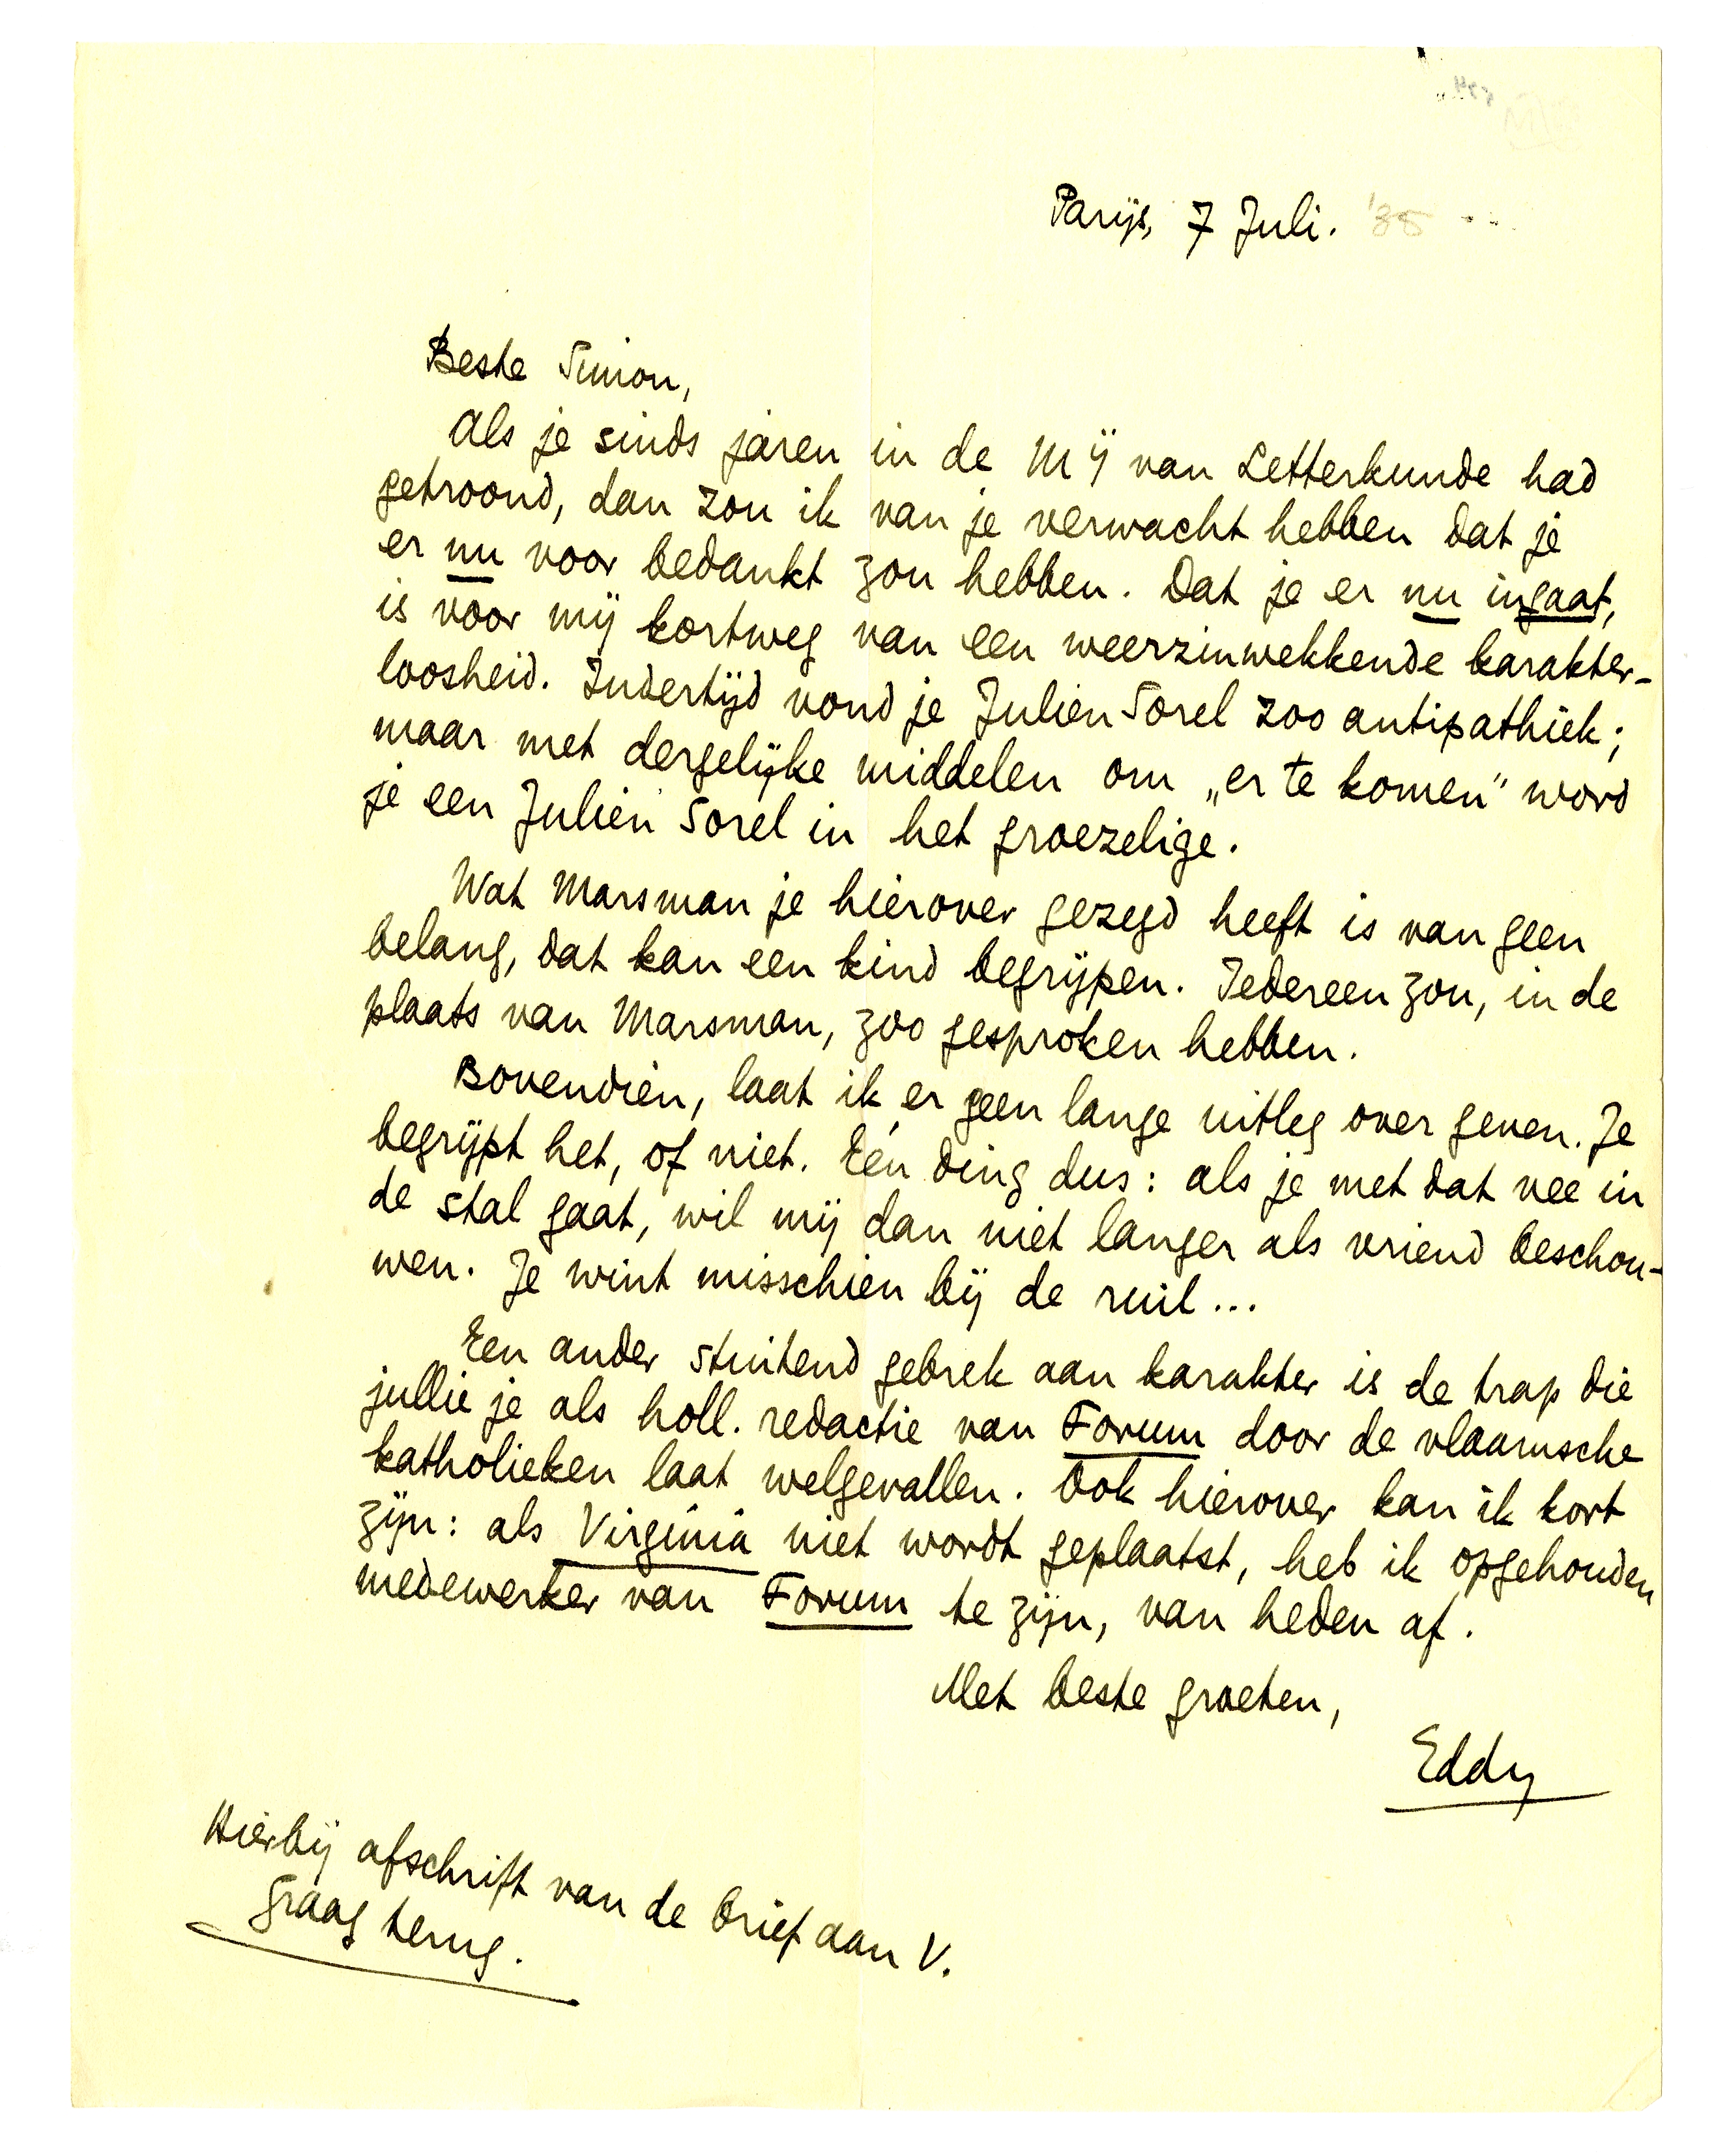 Parijs, 7 Juli. '35
Beste Simon,
Als je sinds jaren in de Mij van Letterkunde had
getroond, dan zou ik van je verwacht hebben dat je
er nu voor bedankt zou hebben. Dat je er nu ingaat,
is voor mij kortweg van een weerzinwekkende karakter-
loosheid. Indertijd vond je Julien Sorel zoo antipathiek;
maar met dergelijke middelen om „er te komen" word
je een Julien Sorel in het groezelige.
Wat Marsman je hierover gezegd heeft is van geen
belang, dat kan een kind begrijpen. Iedereen zou, in de
plaats van Marsman, zoo gesproken hebben.
Bovendien, laat ik er geen lange uitleg over geven. Je
begrijpt het, of niet. Eén ding dus: als je met dat vee in
de stal gaat, wil mij dan niet langer als vriend beschou-
wen. Je wint misschien bij de ruil...
Een ander stuitend gebrek aan karakter is de trap die
jullie je als holl. redactie van Forum door de vlaamsche
katholieken laat welgevallen. Ook hierover kan ik kort
zijn: als Virginia niet wordt geplaatst, heb ik opgehouden
medewerker van Forum te zijn, van heden af.
Met beste groeten,
Eddy
Hierbij afschrift van de brief aan V.
Graag terug.